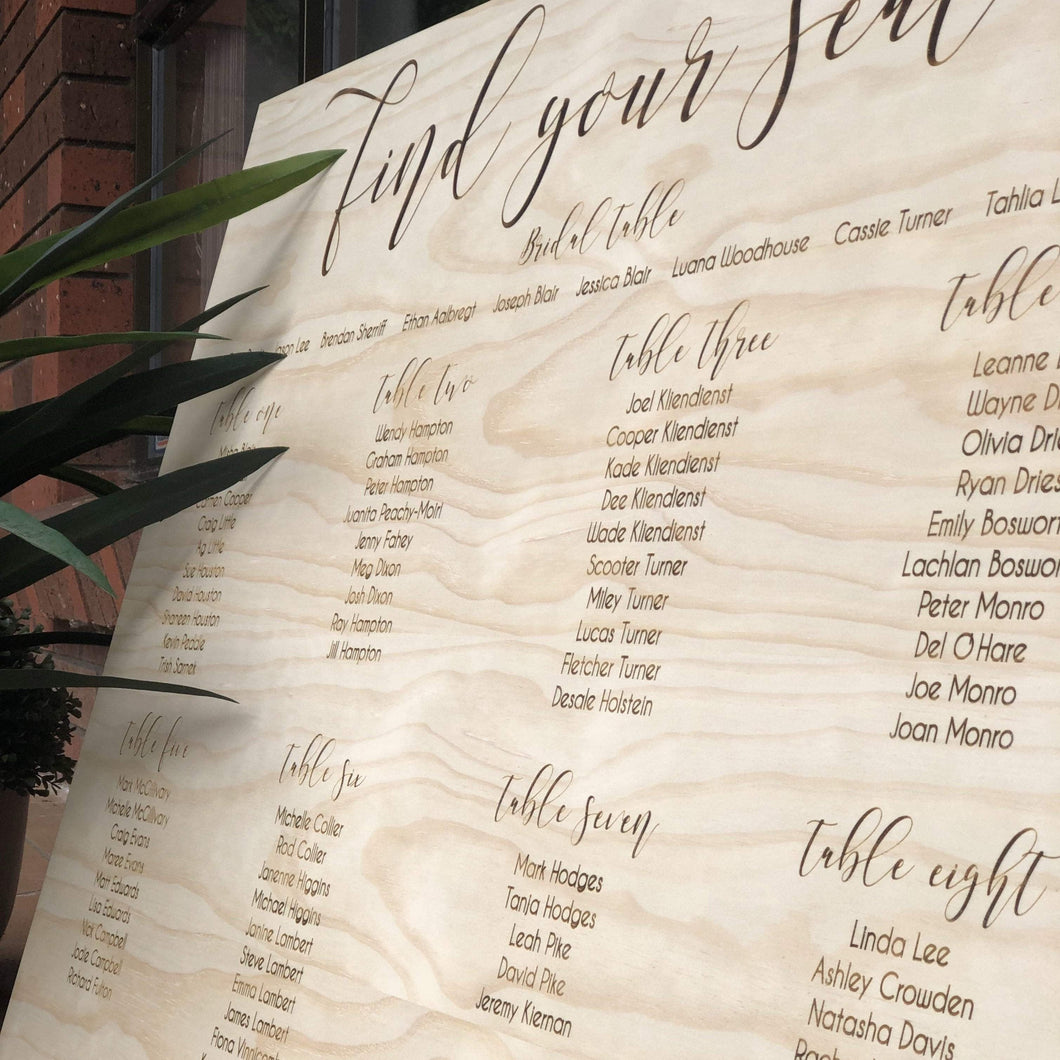 find your seat
Bridal Table
Jason Lee Brendan Sherriff Ethan Aalbregt Joseph Blair Jessica Blair Luana Woodhouse Cassie Turner Tahlia
Table one
Misha Blair
Carmen Cooper
Craig Little
Ag Little
Sue Houston
David Houston
Shareen Houston
Kevin Peddle
Trish Samek
Table two
Wendy Hampton
Graham Hampton
Peter Hampton
Juanita Peachy-Moirl
Jenny Fahey
Meg Dixon
Josh Dixon
Ray Hampton
Jill Hampton
Table three
Joel Kliendienst
Cooper Kliendienst
Kade Kliendienst
Dee Kliendienst
Wade Kliendienst
Scooter Turner
Miley Turner
Lucas Turner
Fletcher Turner
Desale Holstein
Table
Leanne
Wayne
Olivia
Ryan
Emily
Lachlan
Peter Monro
Del O'Hare
Joe Monro
Joan Monro
Table five
Mark McGillivary
Michelle McGillivary
Craig Evans
Maree Evans
Matt Edwards
Lisa Edwards
Nick Campbell
Jodie Campbell
Richard Fulton
Table six
Michelle Collier
Rod Collier
Janenne Higgins
Michael Higgins
Janine Lambert
Steve Lambert
Emma Lambert
James Lambert
Fiona
Table seven
Mark Hodges
Tanja Hodges
Leah Pike
David Pike
Jeremy Kiernan
Table eight
Linda Lee
Ashley Crowden
Natasha Davis